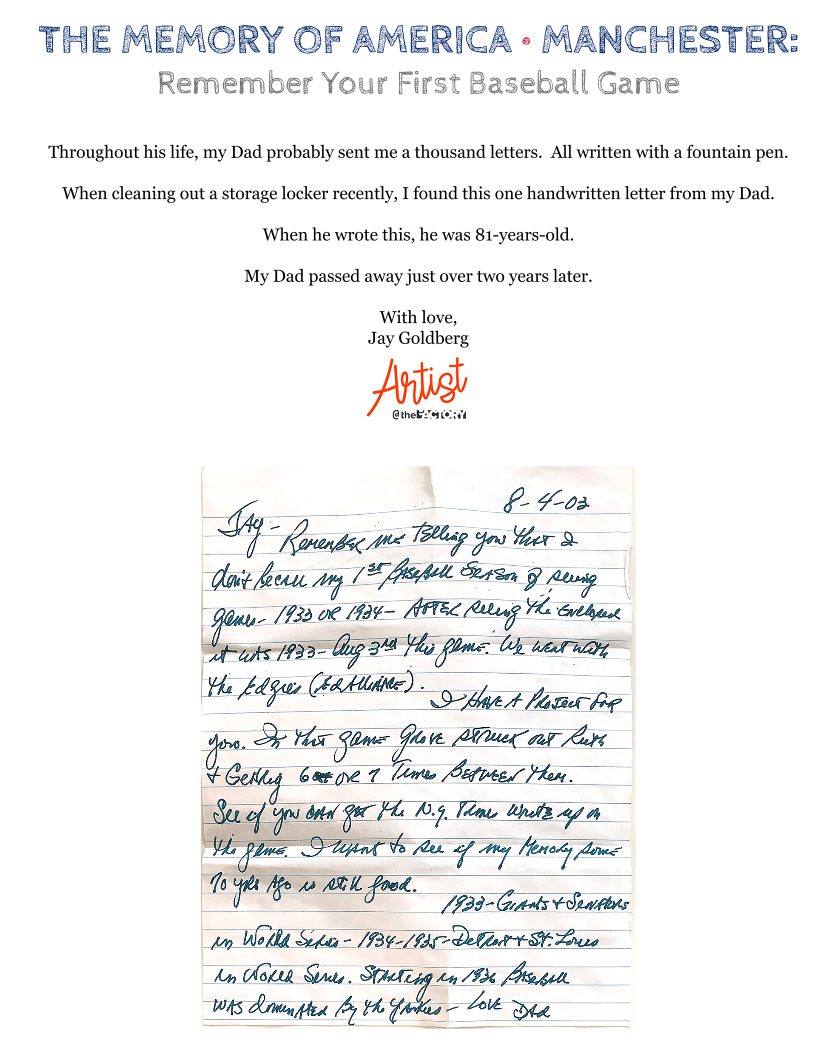 THE MEMORY OF AMERICA • MANCHESTER:
Remember Your First Baseball Game
Throughout his life, my Dad probably sent me a thousand letters.  All written with a fountain pen.
When cleaning out a storage locker recently, I found this one handwritten letter from my Dad.
When he wrote this, he was 81-years-old.
My Dad passed away just over two years later.
With love,
Jay Goldberg
Artist
@theFACTORY
8-4-03
JAy- Remember me telling you that I
don't recall my 1st Baseball Season of seeing
games- 1933 OR 1934- AFTER seeing the Enclosed
it was 1933- Aug 3rd this game. We went with
the Edgies (Ed Alliance).
I HAVE A Project FOR
you. In that game Grove struck out Ruth
+ Gehrig 6 OR 7 Times Between them.
See if you can get the N.Y. Times write up on
the game. I want to see if my Memory some
70 yrs Ago is still good.
1933-Giants + Senators
in World Series - 1934-1935-Detroit + St. Louis
in World Series. Starting in 1936 Baseball
was dominated by the Yankees - Love Dad